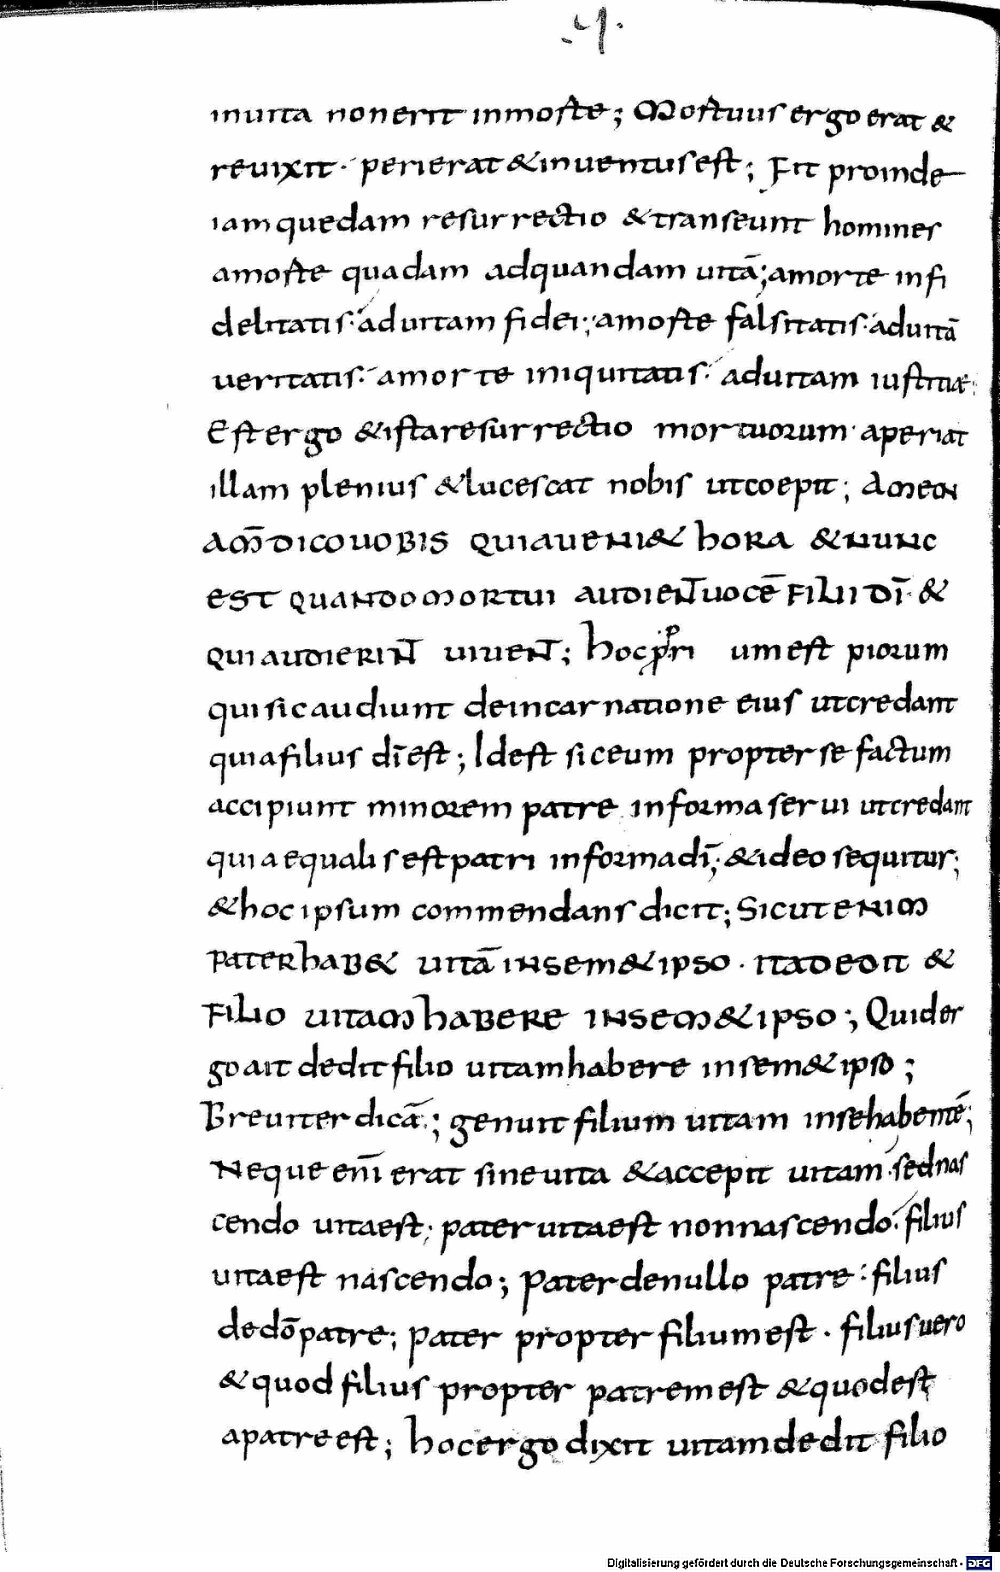 .4.
inuita nonerit inmorte; Mortuus ergo erat &
reuixit · perierat & inuentus est; Fit proinde
iam quedam resurrectio & transeunt homines
amorte quadam adquandam uitā; amorte infi
delitatis · ad uitam fidei; amorte falsitatis · aduitā
ueritatis · amorte iniquitatis · aduitam iustitiæ;
Est ergo & ista resurrectio mortuorum · aperiat
illam plenius & lucescat nobis ut coepit; Amen
AM̄ DICO UOBIS QUIA UENI& hORA & NUNC
EST QUANDO MORTUI AUDIEN̄T UOCĒ FILII DĪ &
QUI AUDIERIN̄T UIUEN̄T; hoc pri um est piorum
qui sic audiunt deincarnatione eius utcredant
quia filius dī est; Idest sic eum propter se factum
accipiunt minorem patre informa serui utcredant
quia equalis est patri informa dī; & ideo sequitur;
& hoc ipsum commendans dicit; SICUT ENIM
PATER hAB& UITĀ INSEM&IPSO · ITA DEDIT &
FILIO UITAM hABERE INSEM&IPSO; Quid er
go ait dedit filio uitam habere insem&ipso;
Breuiter dicā; genuit filium uitam insehabentē;
Neque enī erat sine uita & accepit uitam · sed nas
cendo uita est; pater uita est non nascendo · filius
uita est nascendo; Pater denullo patre · filius
de dō patre; pater propter filium est · filius uero
& quod filius propter patrem est & quod est
apatre est; hoc ergo dixit uitam dedit filio
Digitalisierung gefördert durch die Deutsche Forschungsgemeinschaft - DFG